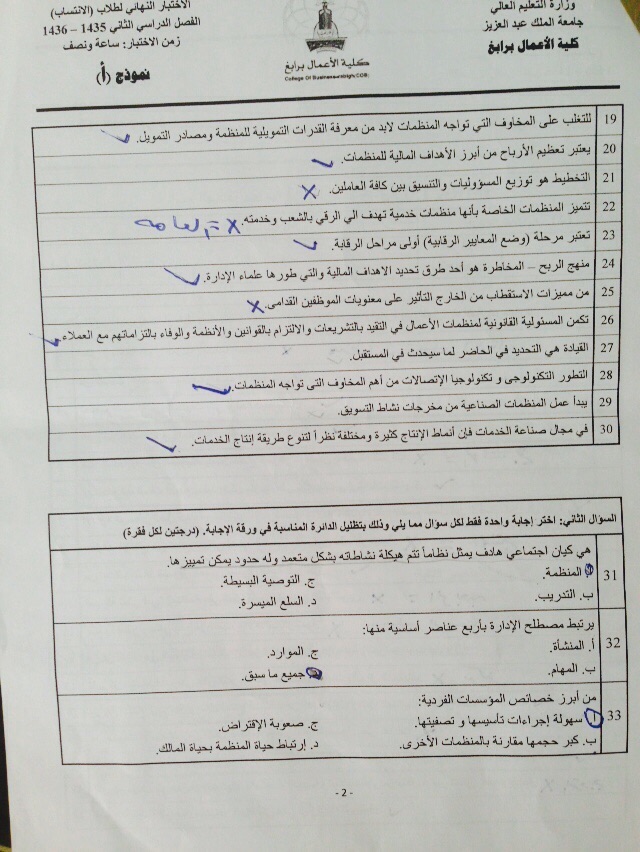 وزارة التعليم العالي
جامعة الملك عبد العزيز
كلية الأعمال برابغ
كلية الأعمال برابغ
College Of Business
الاختبار النهائي لطلاب (الانتساب)
الفصل الدراسي الثاني 1435 – 1436
زمن الاختبار: ساعة ونصف
نموذج (أ)
19 للتغلب على المخاوف التي تواجه المنظمات لابد من معرفة القدرات التمويلية للمنظمة ومصادر التمويل.
20 يعتبر تعظيم الأرباح من أبرز الأهداف المالية للمنظمات.
21 التخطيط هو توزيع المسؤوليات والتنسيق بين كافة العاملين. x
22 تتميز المنظمات الخاصة بأنها منظمات خدمية تهدف الي الرقي بالشعب وخدمته. x العامه
23 تعتبر مرحلة (وضع المعايير الرقابية) أولى مراحل الرقابة.
24 منهج الربح – المخاطرة هو أحد طرق تحديد الاهداف المالية والتي طورها علماء الإدارة.
25 من مميزات الاستقطاب من الخارج التأثير على معنويات الموظفين القدامى. x
26 تكمن المسئولية القانونية لمنظمات الأعمال في التقيد بالتشريعات والالتزام بالقوانين والأنظمة والوفاء بالتزاماتهم مع العملاء.
27 القيادة هي التحديد في الحاضر لما سيحدث في المستقبل.
28 التطور التكنولوجى و تكنولوجيا الإتصالات من أهم المخاوف التى تواجه المنظمات.
29 يبدأ عمل المنظمات الصناعية من مخرجات نشاط التسويق.
30 في مجال صناعة الخدمات فإن أنماط الإنتاج كثيرة ومختلفة نظراً لتنوع طريقة إنتاج الخدمات.
السؤال الثاني: اختر إجابة واحدة فقط لكل سؤال مما يلي وذلك بتظليل الدائرة المناسبة في ورقة الإجابة. (درجتين لكل فقرة)
31 هي كيان اجتماعي هادف يمثل نظاماً تتم هيكلة نشاطاته بشكل متعمد وله حدود يمكن تمييزها.
المنظمة. ج. التوصية البسيطة.
ب. التدريب. د. السلع الميسرة.
32 يرتبط مصطلح الإدارة بأربع عناصر أساسية منها:
أ. المنشأة. ج. الموارد.
ب. المهام. جميع ما سبق.
33 من أبرز خصائص المؤسسات الفردية:
أ سهولة إجراءات تأسيسها و تصفيتها. ج. صعوبة الإقتراض.
ب. كبر حجمها مقارنة بالمنظمات الأخرى. د. إرتباط حياة المنظمة بحياة المالك.
- 2 -